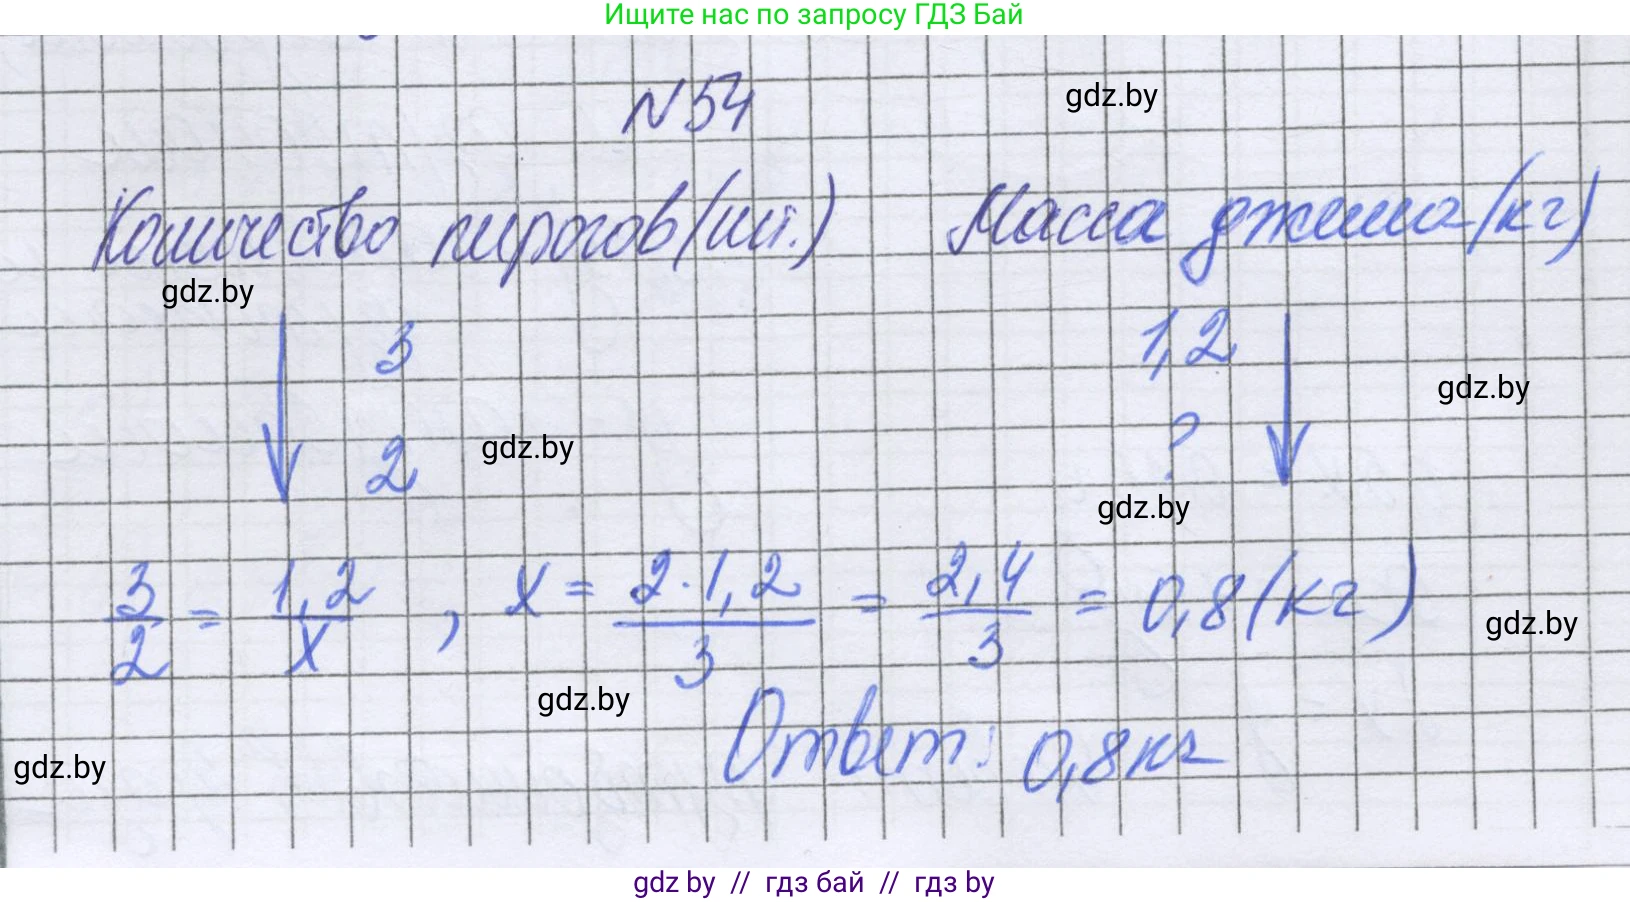 Ищите нас по запросу ГДЗ Бай
N 54
gdz.by
Количество пирогов (шт.) Масса джема (кг)
gdz.by
3 1,2
gdz.by
2 ?
gdz.by
gdz.by
3/2 = 1,2/x , x = 2·1,2/3 = 2,4/3 = 0,8 (кг)
gdz.by
gdz.by
Ответ: 0,8 кг
gdz.by
gdz by // гдз бай // гдз by